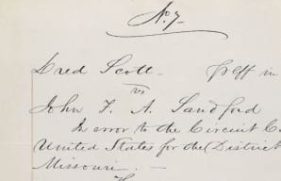 No. 7
Dred Scott plff in
vs
John F. A. Sandford
In error to the Circuit C
United States for the District
Missouri. —